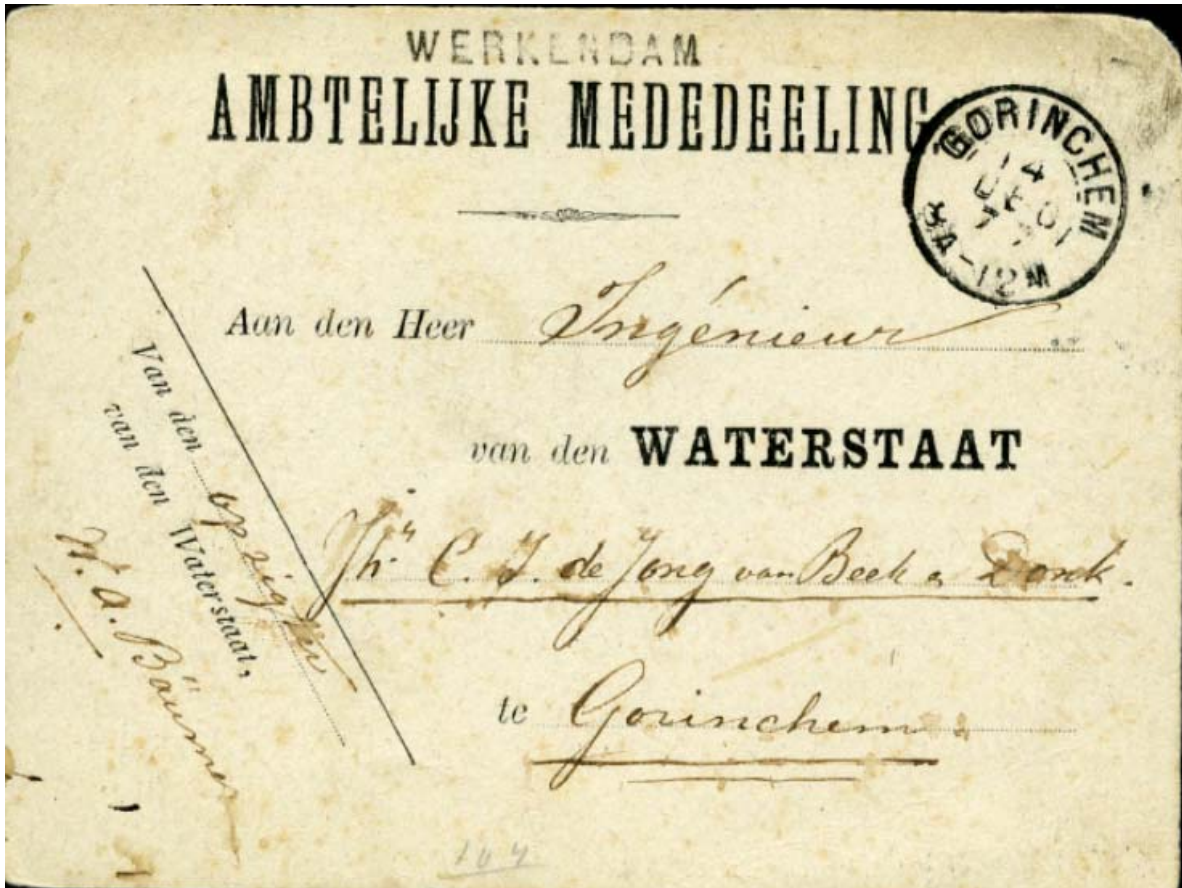 WERKENDAM
AMBTELIJKE MEDEDEELING.
GORINCHEM
14
DEC
77
8A-12M
Aan den Heer Ingénieur
van den WATERSTAAT
Jhr C. J. de Jong van Beek en Donk.
te Gorinchem.
Van den opzigter
van den Waterstaat,
W. A. Bäumer